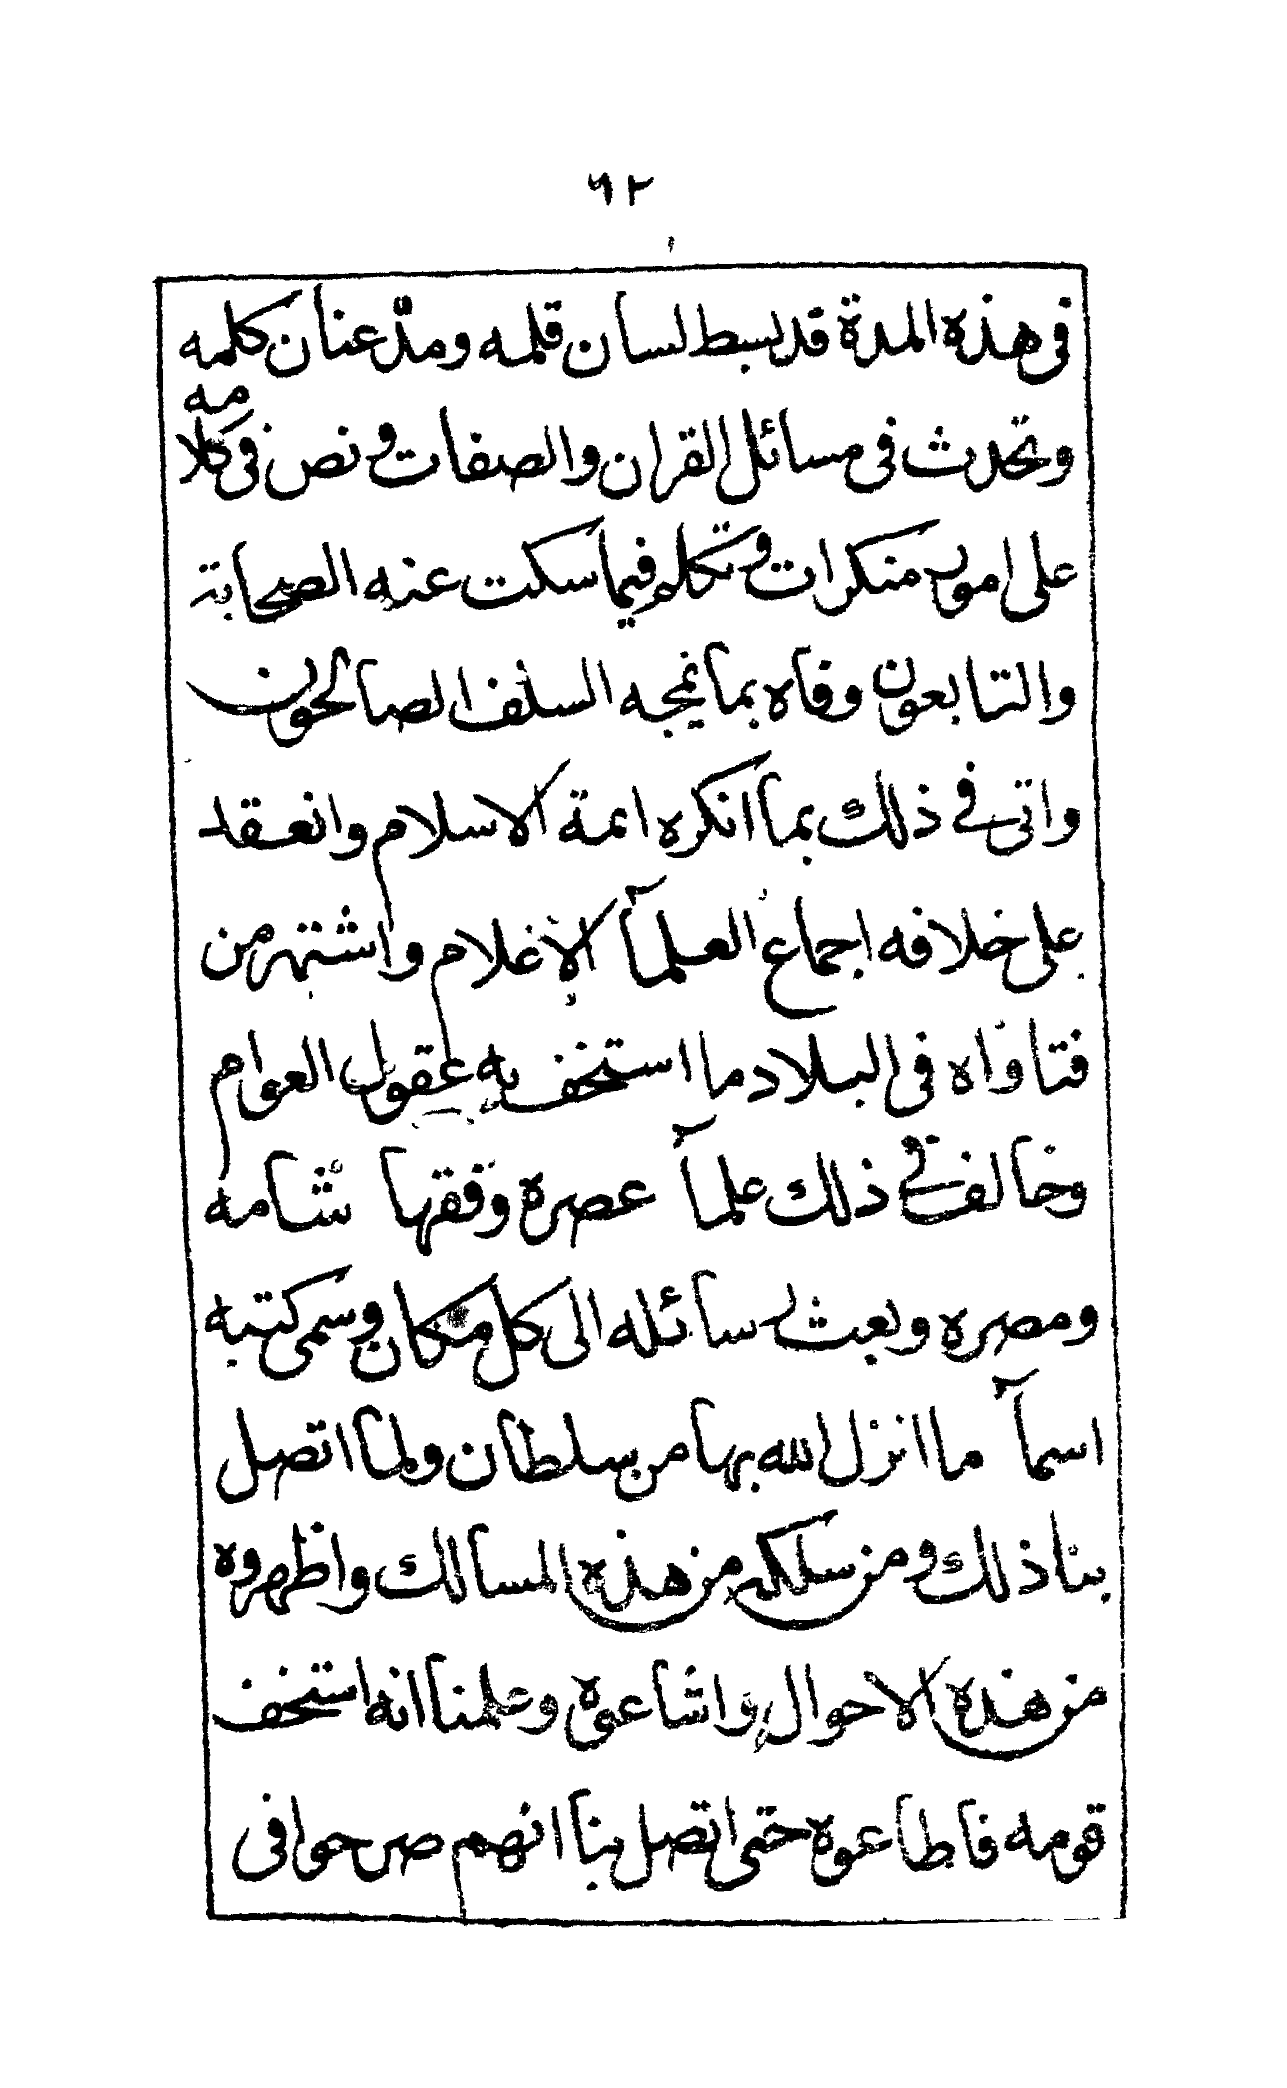 ٦٢
في هذه المدة قد بسط لسان قلمه ومدّ عنان كلمه
وتحدث في مسائل القران والصفات ونص في كلامه
على امور منكرات وتكلم فيما سكت عنه الصحابة
والتابعون وفاه بما يمجه السلف الصالحون
واتى في ذلك بما انكره ايمة الاسلام وانعقد
على خلافه اجماع العلمآ الاعلام واشتهر من
فتاواه في البلاد ما استخف به عقول العوام
وخالف في ذلك علمآ عصره وفقها شامه
ومصره وبعث رسائله الى كل مكان وسمى كتبه
اسمآ ما انزل الله بها من سلطان ولما اتصل
بنا ذلك ومن سلكه من هذه المسالك واظهروه
من هذه الاحوال واشاعوه وعلمنا انه استخف
قومه فاطاعوه حتى اتصل بنا انهم صرحوا في